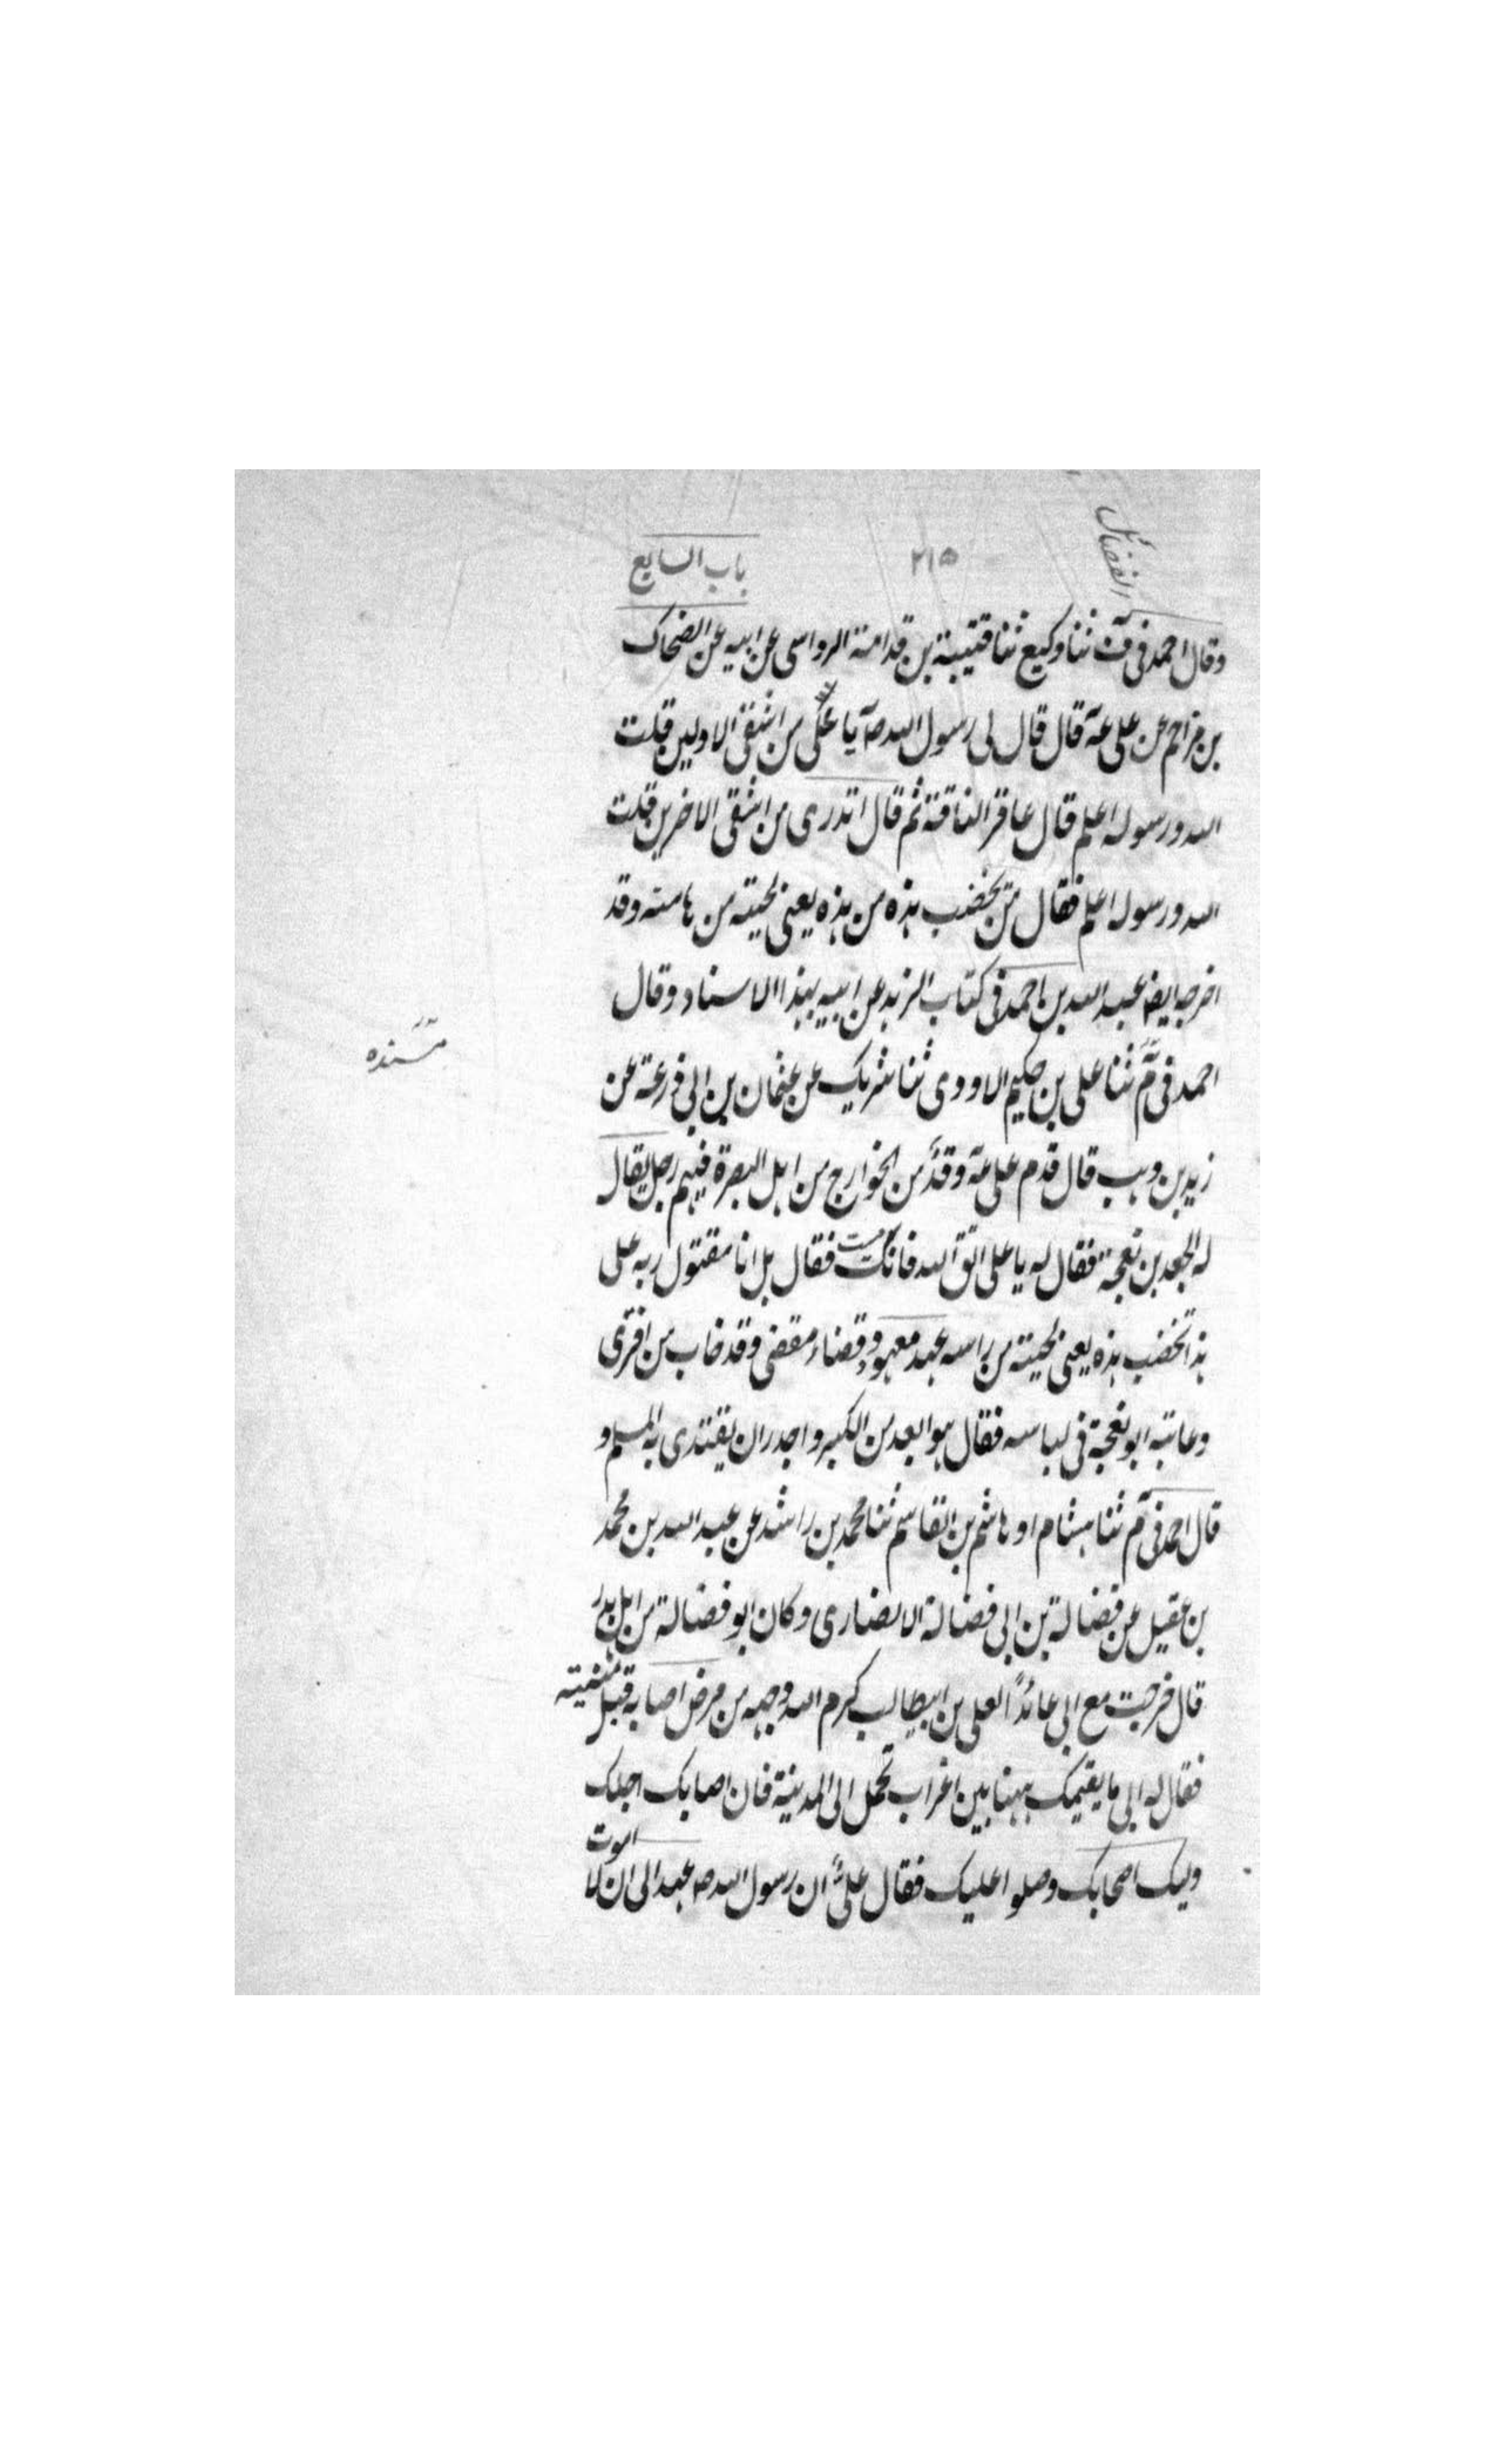 الفضائل ٢١٥ باب السابع
وقال احمد فى ف ثنا وكيع ثنا قتيبة بن قدامة الرواسى عن ابيه عن الضحاك
بن مزاحم عن على عه قال قال لى رسول الله صه يا على من اشقى الاولين قلت
الله ورسوله اعلم قال عاقر الناقة ثم قال اتدرى من اشقى الاخرين قلت
الله ورسوله اعلم فقال من يخضب هذه من هذه يعنى لحيته من هامته وقد
اخرجه ايضا عبد الله بن احمد فى كتاب الزهد عن ابيه بهذا الاسناد وقال
مسنده
احمد فى م ثنا على بن حكيم الاودى ثنا شريك عن عثمان بن ابى زرعة عن
زيد بن وهب قال قدم على عه وفد من الخوارج من اهل البصرة فيهم رجل يقال
له الجعد بن نعجة فقال له يا على اتق الله فانك ميت فقال بل انا مقتول ربه على
هذا تخضب هذه يعنى لحيته من راسه عهد معهود وقضاء مقضى وقد خاب من افترى
وعاتبه ابو نعجة فى لباسه فقال هو ابعد من الكبر واجدر ان يقتدى به المسلم و
قال احمد فى م ثنا هشام او هاشم بن القاسم ثنا محمد بن راشد عن عبد الله بن محمد
بن عقيل عن فضالة بن ابى فضالة الانصارى وكان ابو فضالة من اهل بدر
قال خرجت مع ابى عائدًا لعلى بن ابيطالب كرم الله وجهه من مرض اصابه قبل
فقال له ابى ما يقيمك ههنا بين اعراب تحمل الى المدينة فان اصابك اجلك
وليك اصحابك وصلوا عليك فقال على ان رسول الله صه عهد الى ان لا اموت